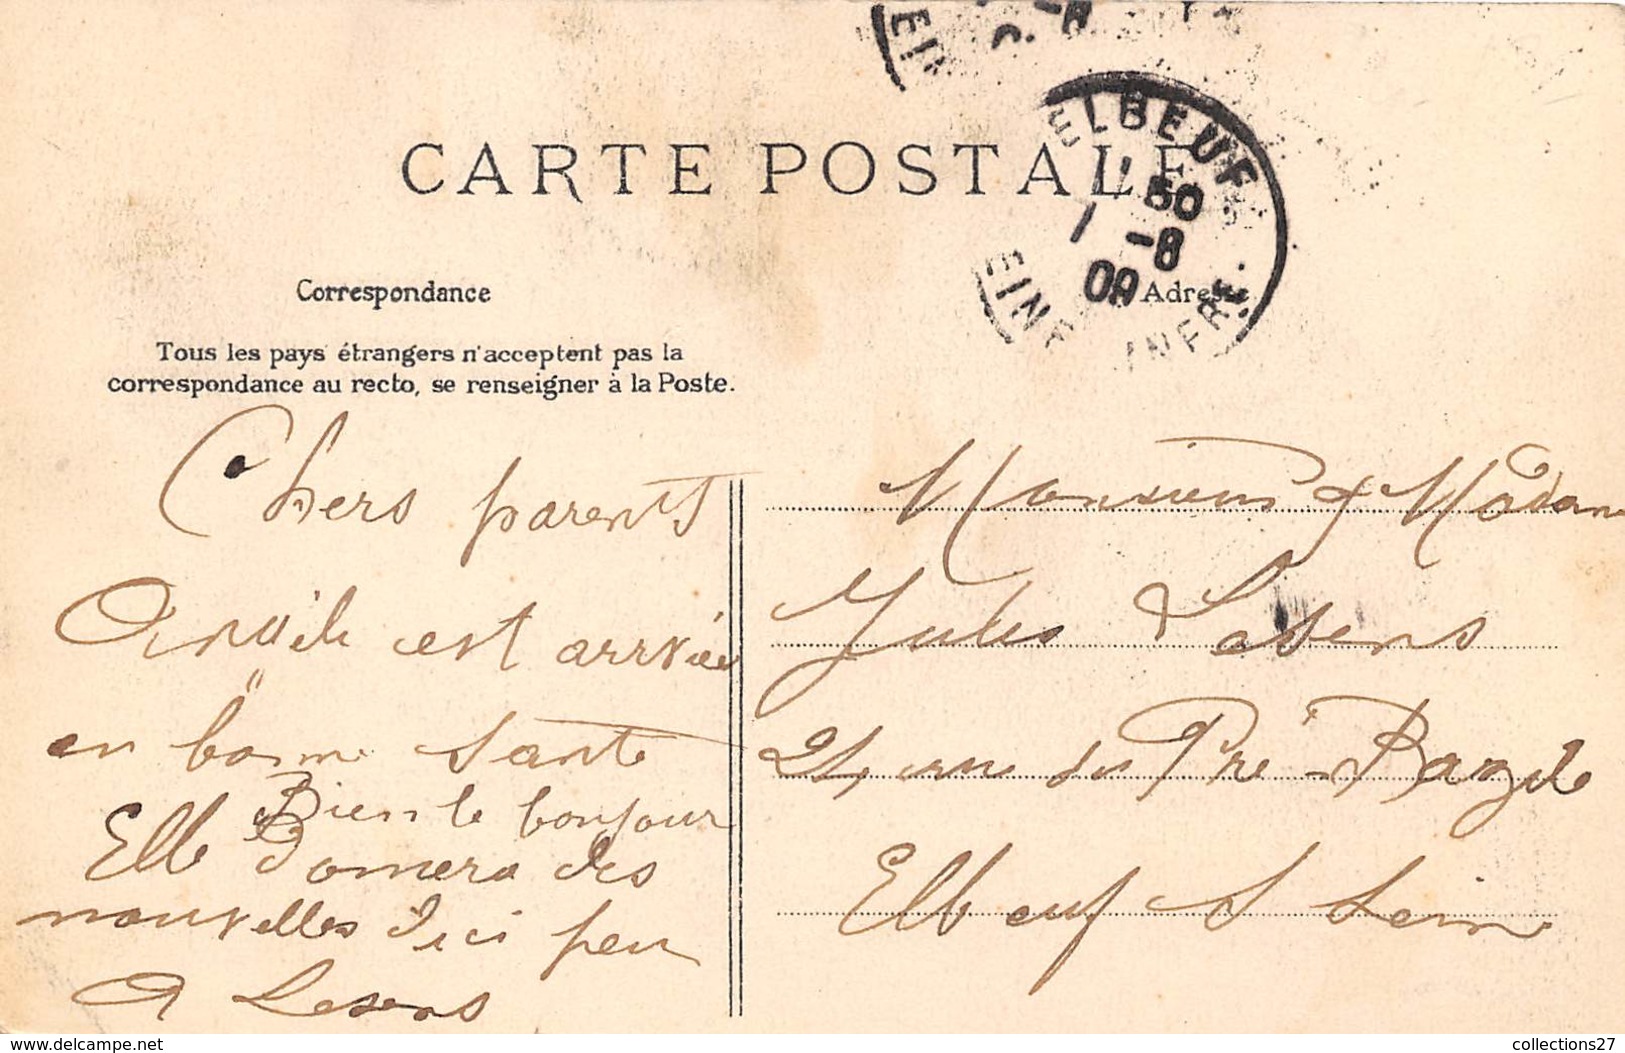 CARTE POSTALE
ELBEUF
50
1 -8
09
EINE INFRE.
Correspondance
Adresse
Tous les pays étrangers n'acceptent pas la
correspondance au recto, se renseigner à la Poste.
Chers parents
est arrivée
en bonne santé
Bien le bonjour
Elle donnera des
nouvelles d'ici peu
A Lesens
Monsieur & Madame
Jules
21, rue du Pré-Bazile
Elbeuf S Seine
www.delcampe.net
collections27